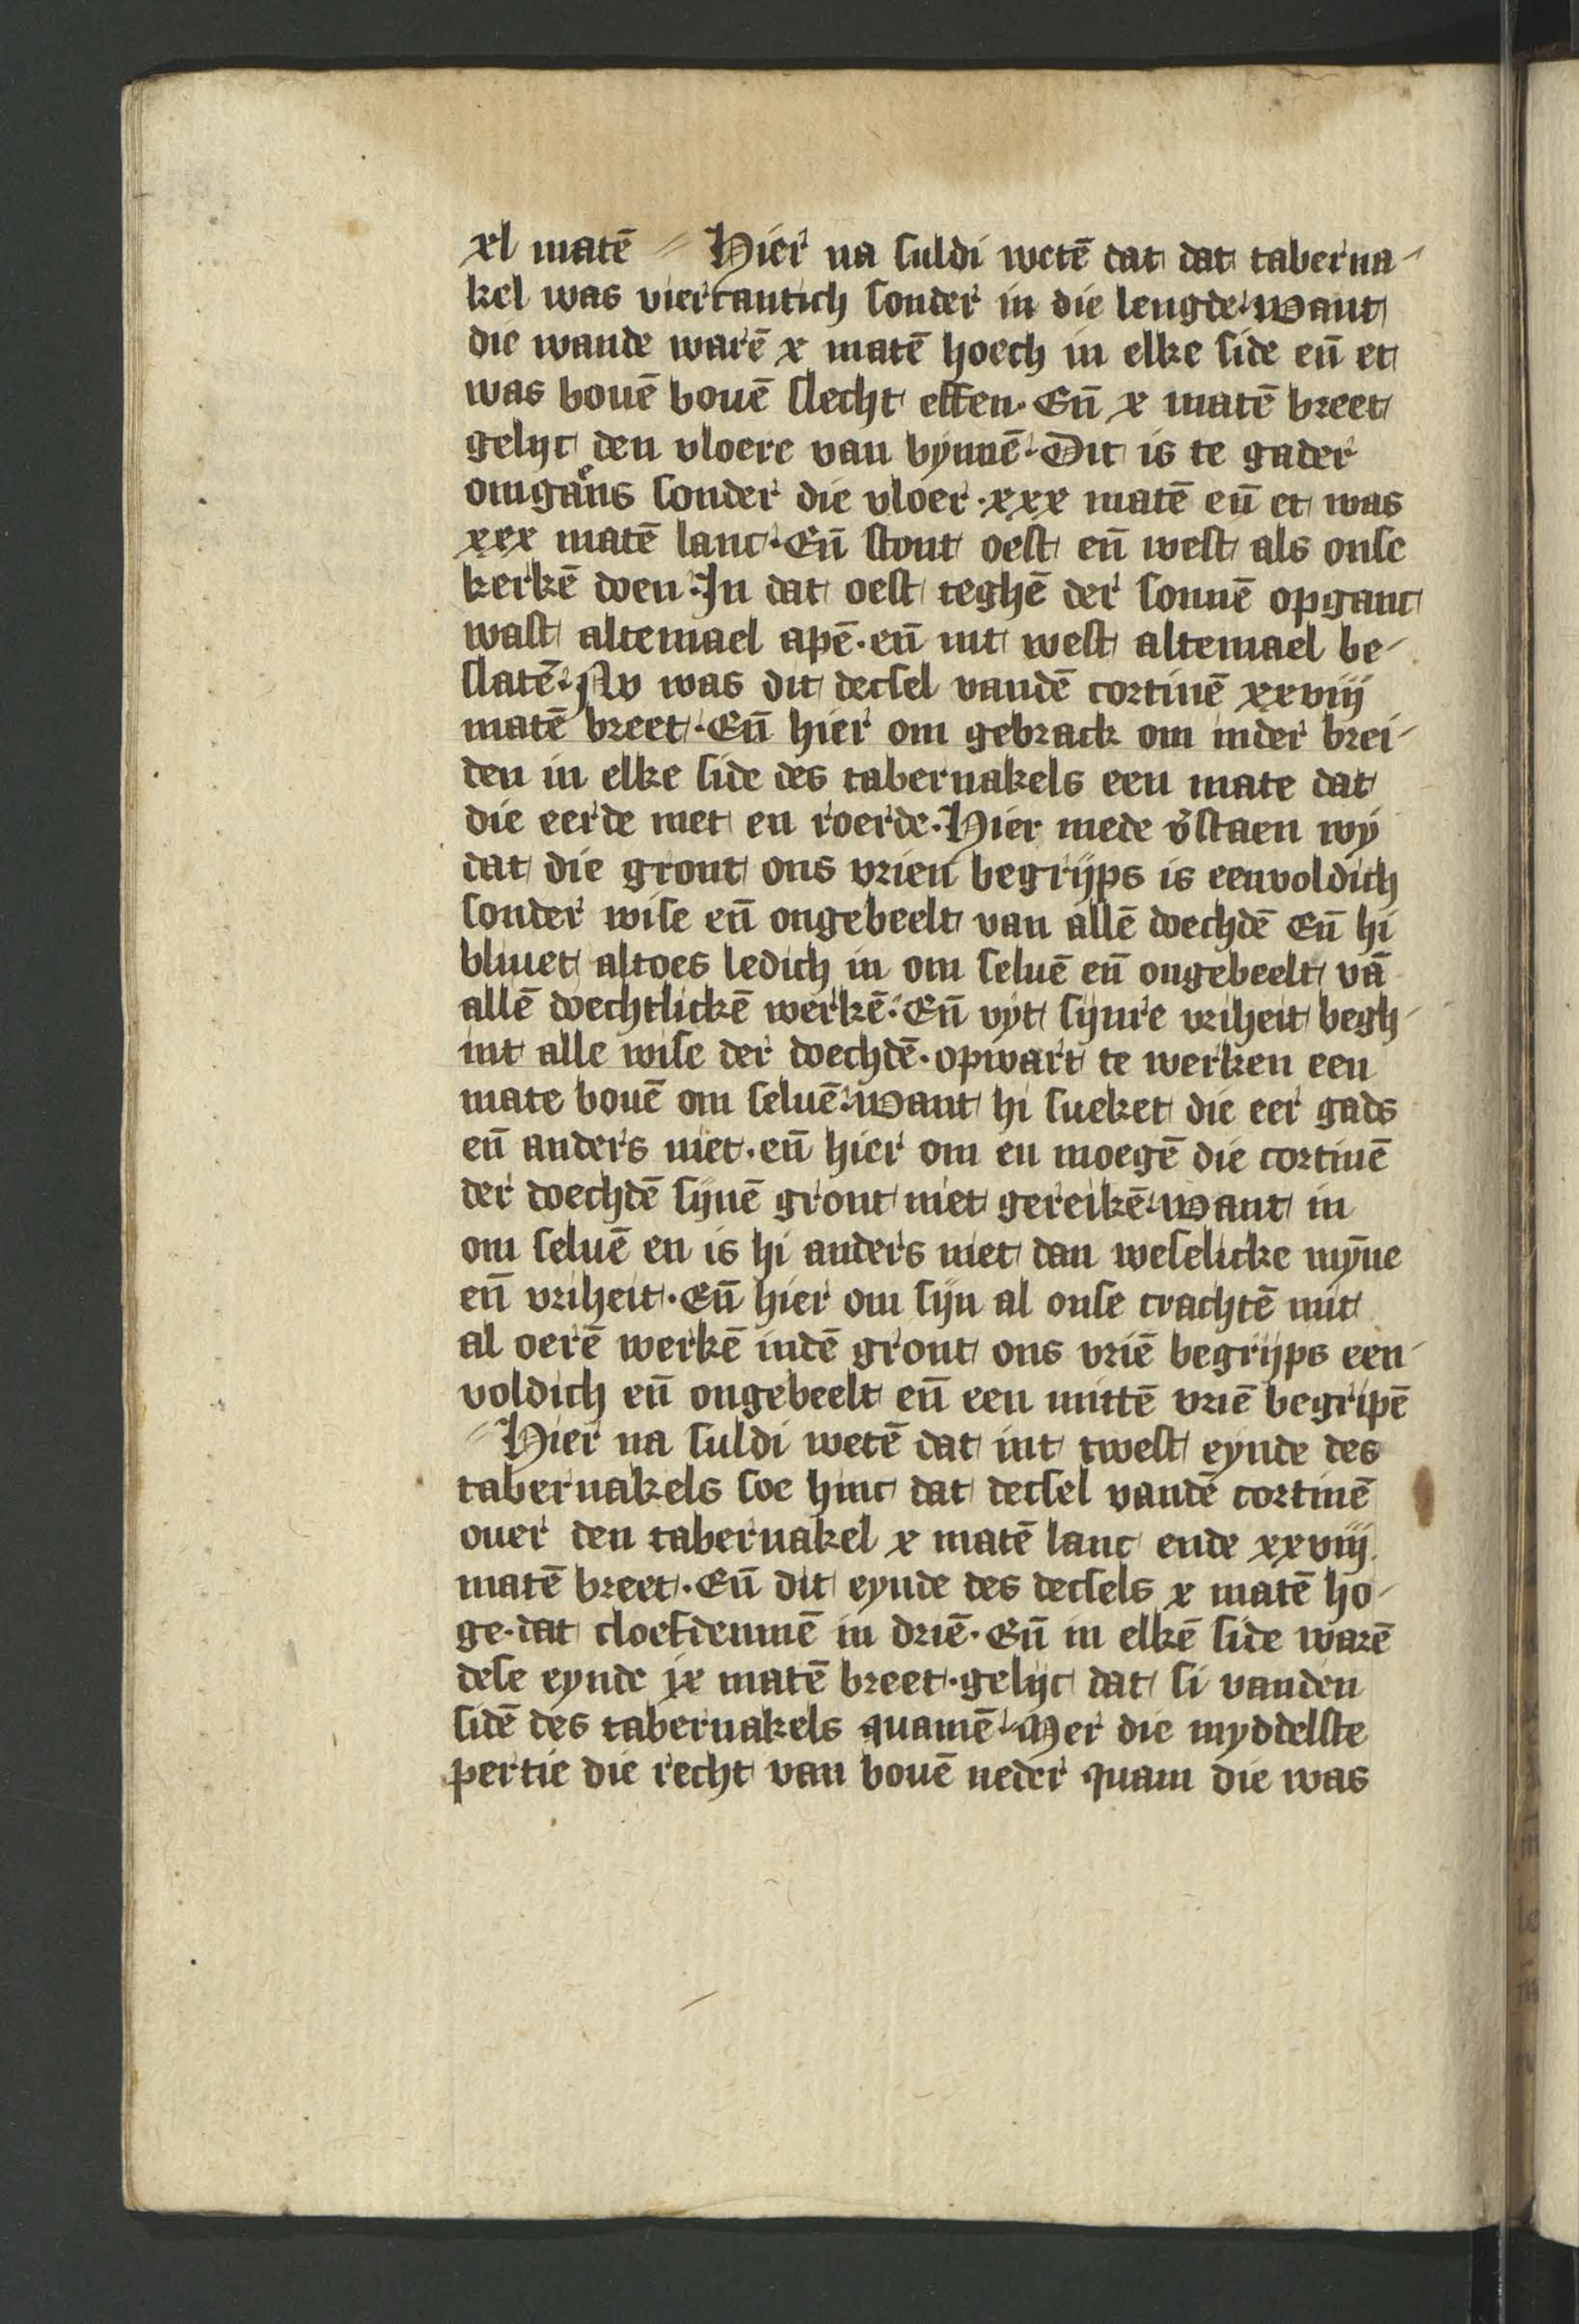 xl matē // Hier na suldi wetē dat dat taberna-
kel was viercantich sonder in die lengde. Want
die wande warē x matē hoech in elke side eñ et
was bouē bouē slecht effen. Eñ x matē breet
gelijc den vloere van bynnē. Dit is te gader
omgaens sonder die vloer. xxx matē eñ et was
xxx matē lanc. Eñ stont oest eñ west als onse
kerkē doen. In dat oest teghē der sonnē opganc
wast altemael apē. eñ int west altemael be-
slatē. Nv was dit decsel vandē cortinē xxviij
matē breet. Eñ hier om gebrack om inder brei-
den in elke side des tabernakels een mate dat
die eerde niet en roerde. Hier mede v̄staen wy
dat die gront ons vrien begrijps is eenvoldich
sonder wise eñ ongebeelt van allē doechdē Eñ hi
bliuet altoes ledich in om seluē eñ ongebeelt vā
allē doechtlickē werkē. Eñ vyt sijnre vriheit begh-
int alle wise der doechdē. opwart te werken een
mate bouē om seluē. Want hi sueket die eer gads
eñ anders niet. eñ hier om en moegē die cortinē
der doechdē sijnē gront niet gereikē. Want in
om seluē en is hi anders niet dan weselicke mȳne
eñ vriheit. Eñ hier om sijn al onse crachtē mit
al oerē werkē indē gront ons vriē begrijps een-
voldich eñ ongebeelt eñ een mittē vriē begripē
// Hier na suldi wetē dat int twest eynde des
tabernakels soe hinc dat decsel vandē cortinē
ouer den tabernakel x matē lanc ende xxviij
matē breet. Eñ dit eynde des decsels x matē ho-
ge. dat cloefdenmē in driē. Eñ in elkē side warē
dese eynde ix matē breet. gelijc dat si vanden
sidē des tabernakels quamē. Mer die myddelste
pertie die recht van bouē neder quam die was